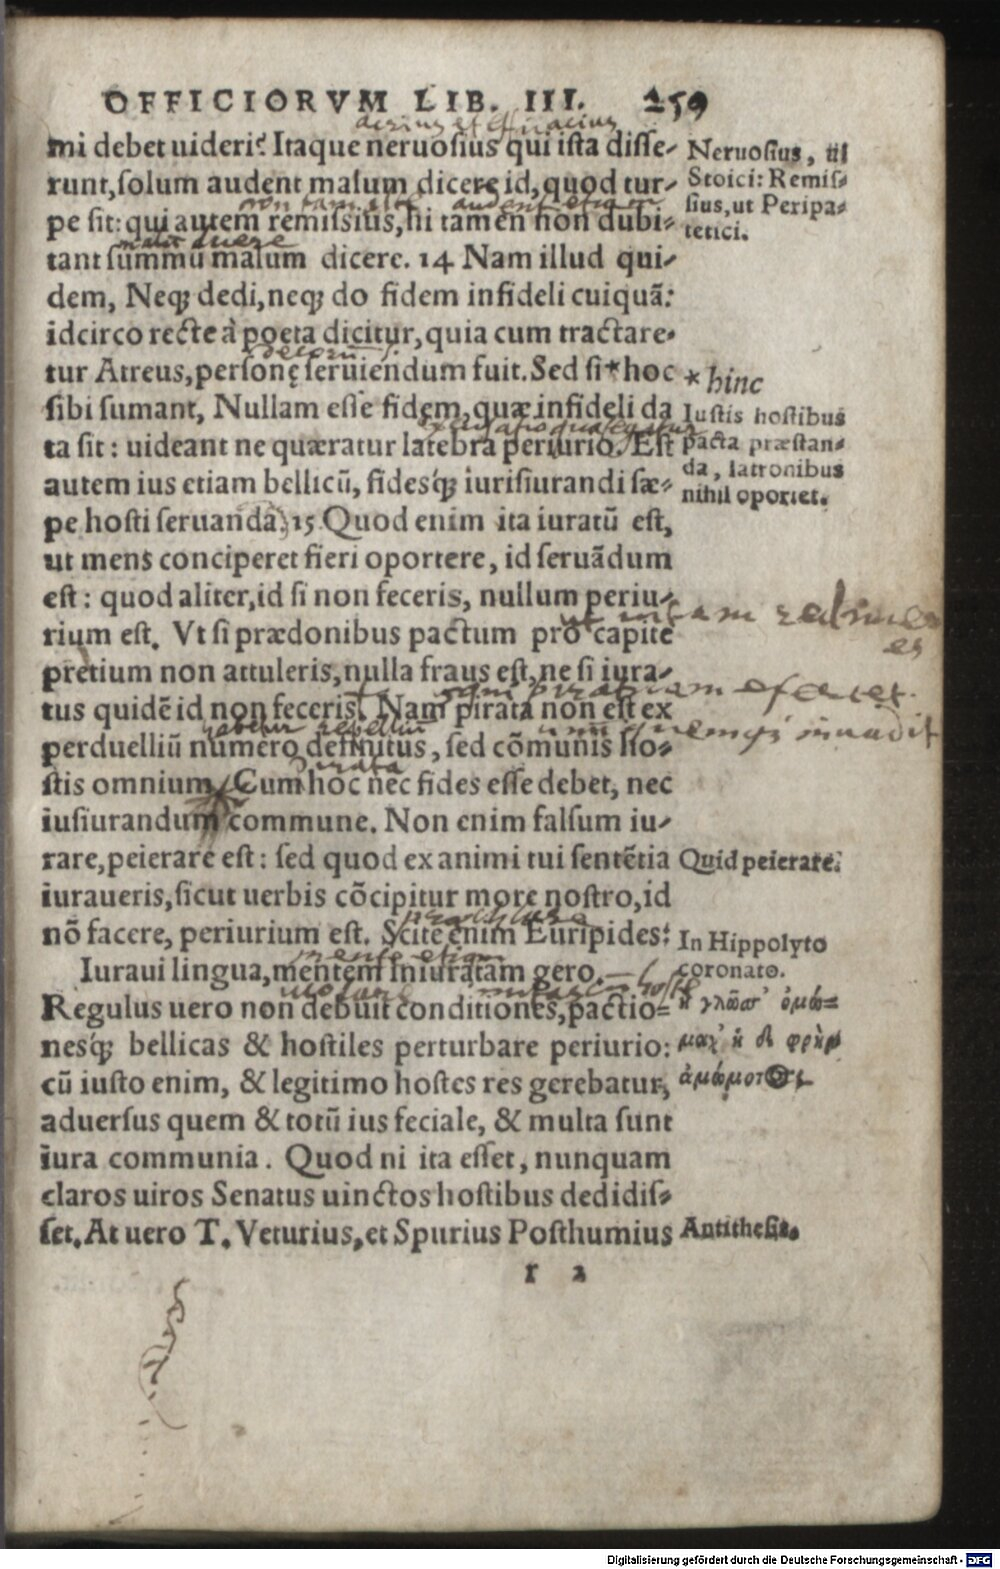 OFFICIORVM LIB. III. 259
mi debet uideri? Itaque neruosius qui ista disse-
runt, solum audent malum dicere id, quod tur-
pe sit: qui autem remissius, hi tamen non dubi-
tant summũ malum dicere. 14 Nam illud qui-
dem, Neqꝫ dedi, neqꝫ do fidem infideli cuiquã:
idcirco recte à poeta dicitur, quia cum tractare-
tur Atreus, personę seruiendum fuit. Sed si * hoc
sibi sumant, Nullam esse fidem, quæ infideli da
ta sit: uideant ne quæratur latebra periurio. Est
autem ius etiam bellicũ, fidesq́ꝫ iurisiurandi sæ-
pe hosti seruanda. 15 Quod enim ita iuratũ est,
ut mens conciperet fieri oportere, id seruãdum
est: quod aliter, id si non feceris, nullum periu-
rium est. Vt si prædonibus pactum pro capite
pretium non attuleris, nulla fraus est, ne si iura-
tus quidẽ id non feceris. Nam pirata non est ex
perduelliũ numero definitus, sed cõmunis ho-
stis omnium. Cum hoc nec fides esse debet, nec
iusiurandum commune. Non enim falsum iu-
rare, peierare est: sed quod ex animi tui sentẽtia
iuraueris, sicut uerbis cõcipitur more nostro, id
nõ facere, periurium est. Scite enim Euripides:
Iuraui lingua, mentem iniuratam gero.
Regulus uero non debuit conditiones, pactio-
nesq́ꝫ bellicas & hostiles perturbare periurio:
cũ iusto enim, & legitimo hostes res gerebatur,
aduersus quem & totũ ius feciale, & multa sunt
iura communia. Quod ni ita esset, nunquam
claros uiros Senatus uinctos hostibus dedidis-
set. At uero T. Veturius, et Spurius Posthumius
r 2
Neruosius, ut
Stoici: Remis-
sius, ut Peripa-
tetici.
* hinc
Iustis hostibus
pacta præstan-
da, latronibus
nihil oportet.
Quid peierare.
In Hippolyto
coronato.
ἡ γλῶσσ' ὀμώ-
μοχ' ἡ δὲ φρὴν
ἀνώμοτος
Antithesis.
non tam
audent etiam
pirata
mente etiam
Digitalisierung gefördert durch die Deutsche Forschungsgemeinschaft - DFG